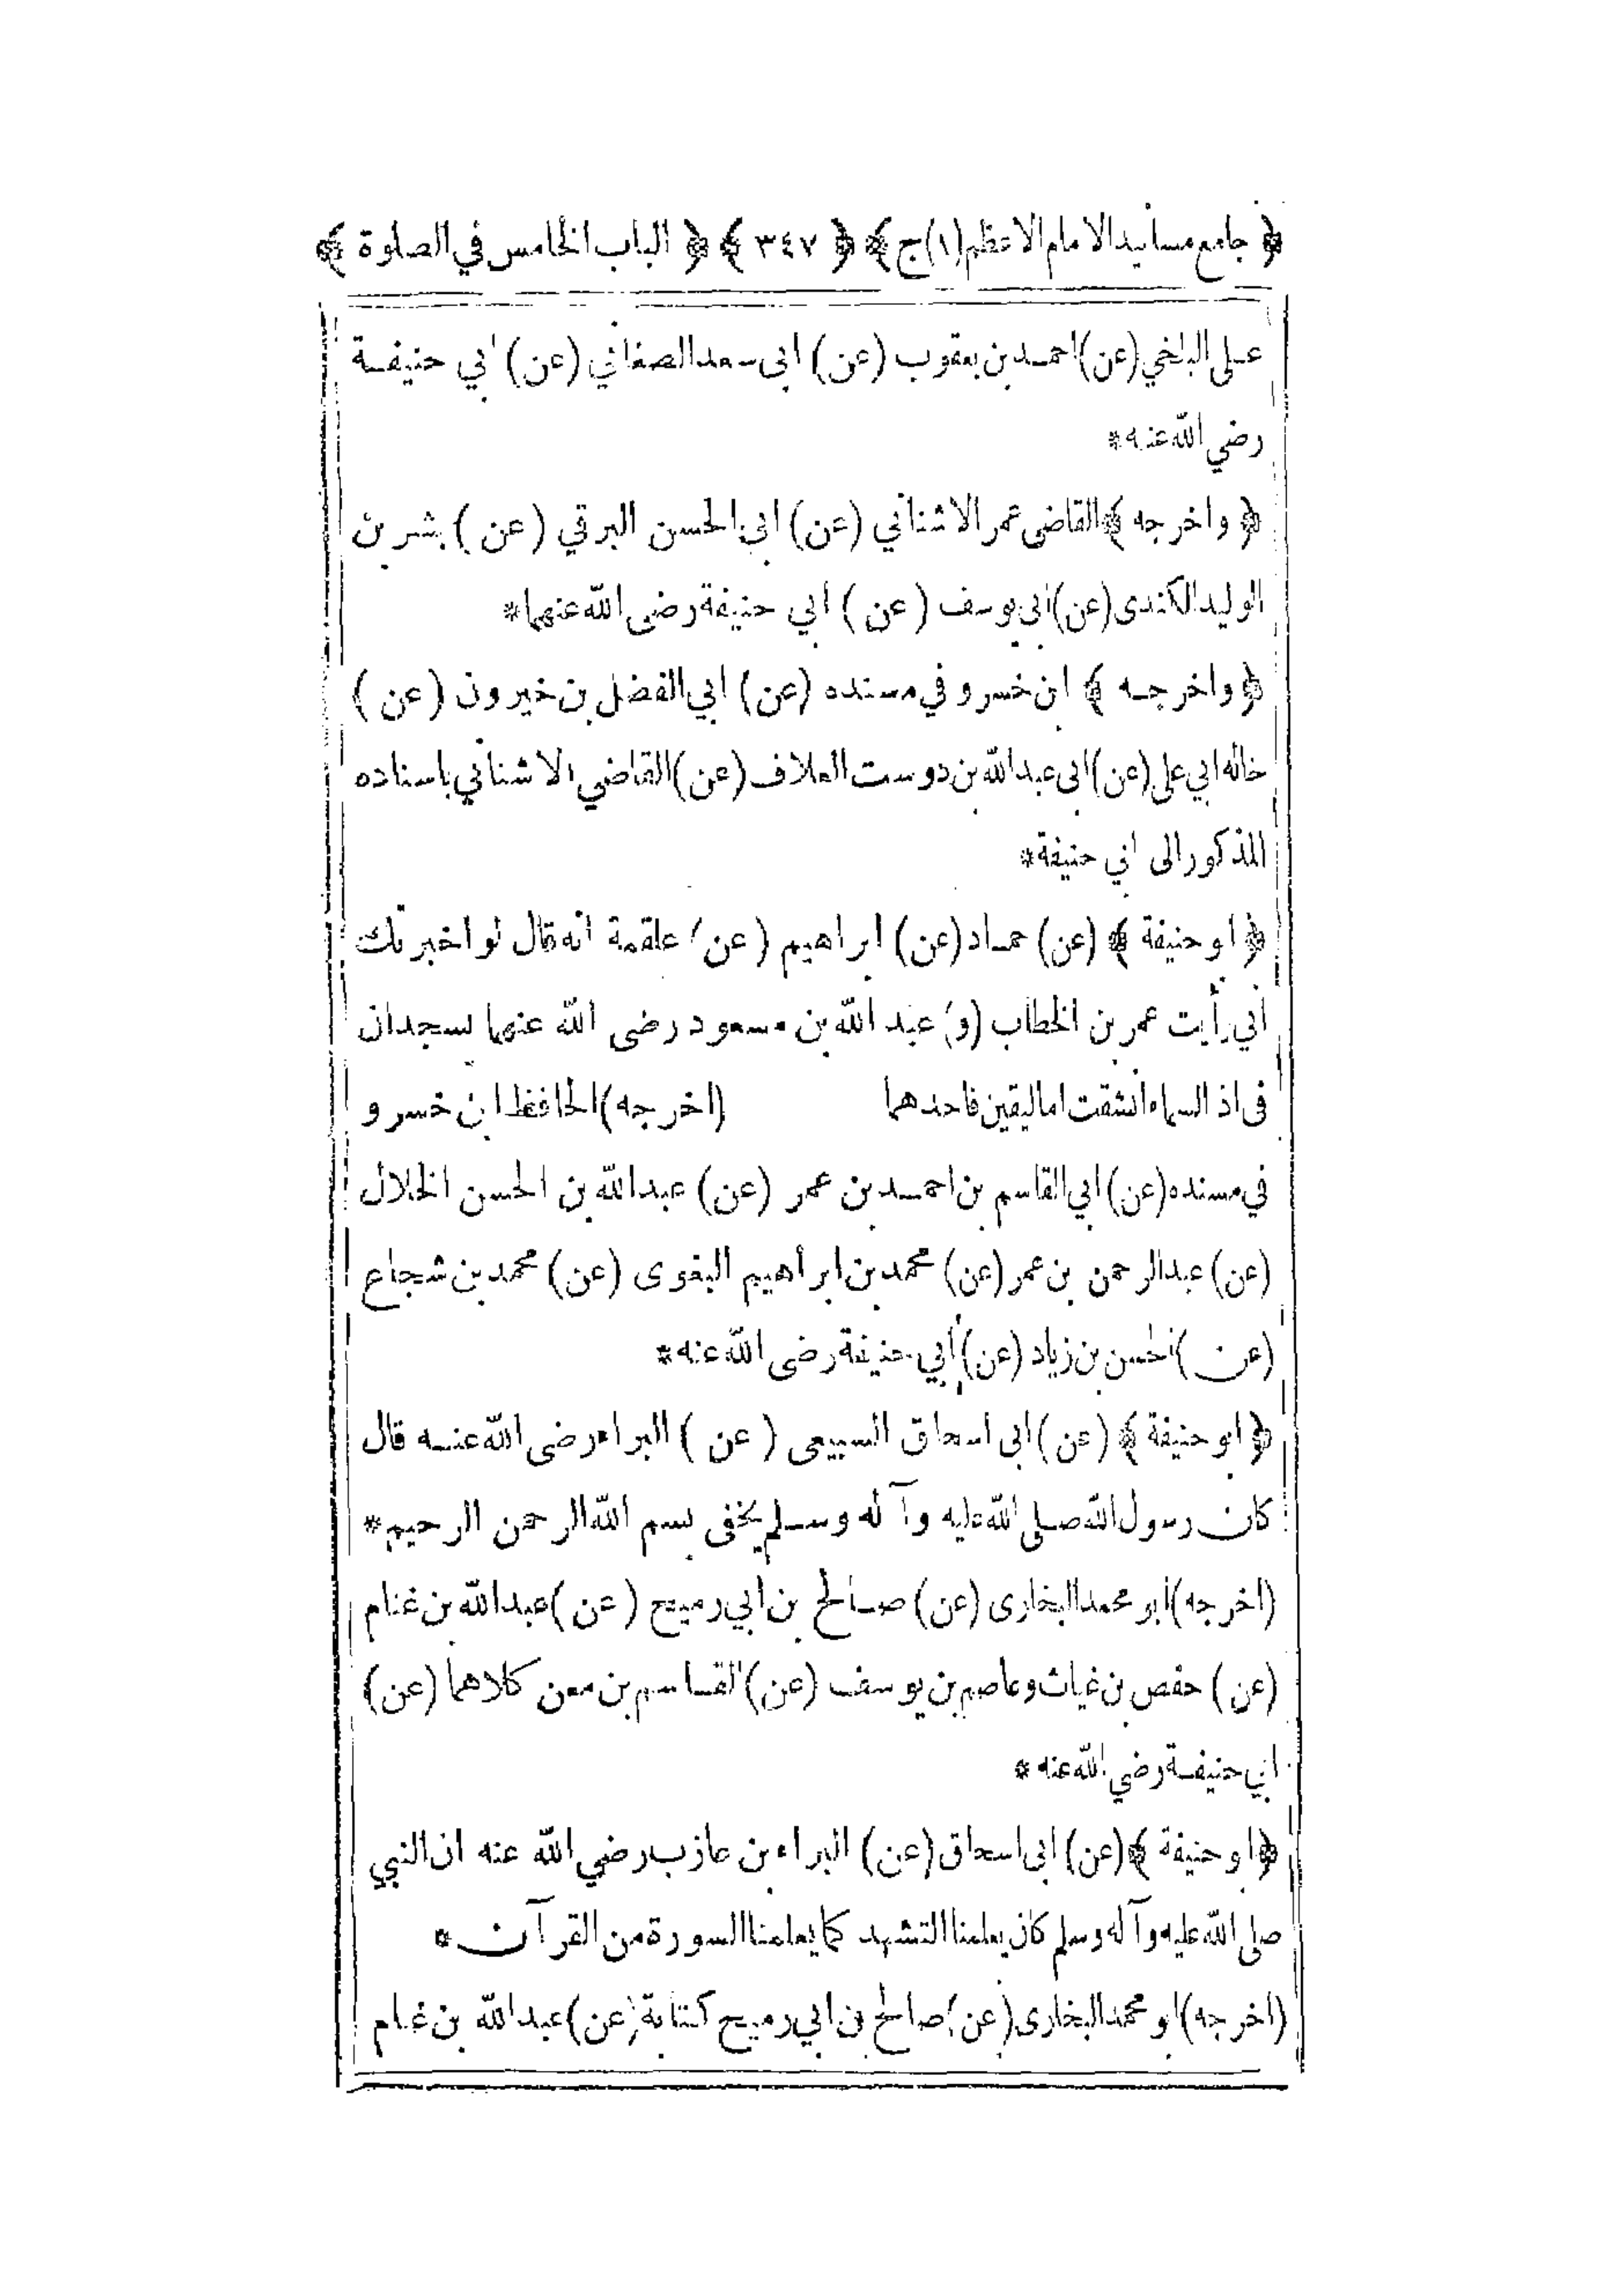 ﴿ جامع مسانيد الامام الاعظم (١) ج ﴾ ﴿ ٣٤٧ ﴾ ﴿ الباب الخامس في الصلوة ﴾
على البلخي (عن) احمد بن يعقوب (عن) ابى سعد الصغاني (عن) ابي حنيفة
رضي الله عنه *
﴿ واخرجه ﴾ القاضى عمر الاشناني (عن) ابى الحسن البرقي (عن) بشر بن
الوليد الكندى (عن) ابى يوسف (عن) ابي حنيفة رضى الله عنهما *
﴿ واخرجه ﴾ ابن خسرو في مسنده (عن) ابي الفضل بن خيرون (عن)
خاله ابي على (عن) ابى عبد الله بن دوست العلاف (عن) القاضي الاشناني باسناده
المذكور الى ابي حنيفة *
﴿ ابو حنيفة ﴾ (عن) حماد (عن) ابراهيم (عن) علقمة انه قال لو اخبرتك
اني رأيت عمر بن الخطاب (و) عبد الله بن مسعود رضى الله عنهما يسجدان
فى اذ السماء انشقت اما اليقين فاحدهما (اخرجه) الحافظ ابن خسرو
في مسنده (عن) ابي القاسم بن احمد بن عمر (عن) عبد الله بن الحسن الخلال
(عن) عبد الرحمن بن عمر (عن) محمد بن ابراهيم البغوى (عن) محمد بن شجاع
(عن) الحسن بن زياد (عن) أبي حنيفة رضى الله عنه *
﴿ ابو حنيفة ﴾ (عن) ابى اسحاق السبيعى (عن) البراء رضى الله عنه قال
كان رسول الله صلى الله عليه وآله وسلم يخفى بسم الله الرحمن الرحيم *
(اخرجه) ابو محمد البخارى (عن) صالح بن ابي رميح (عن) عبد الله بن غنام
(عن) حفص بن غياث وعاصم بن يوسف (عن) القاسم بن معن كلاهما (عن)
ابي حنيفة رضي الله عنه *
﴿ ابو حنيفة ﴾ (عن) ابى اسحاق (عن) البراء بن عازب رضي الله عنه ان النبي
صلى الله عليه وآله وسلم كان يعلمنا التشهد كما يعلمنا السورة من القرآن *
(اخرجه) ابو محمد البخارى (عن) صالح بن ابي رميح كتابة (عن) عبد الله بن غنام